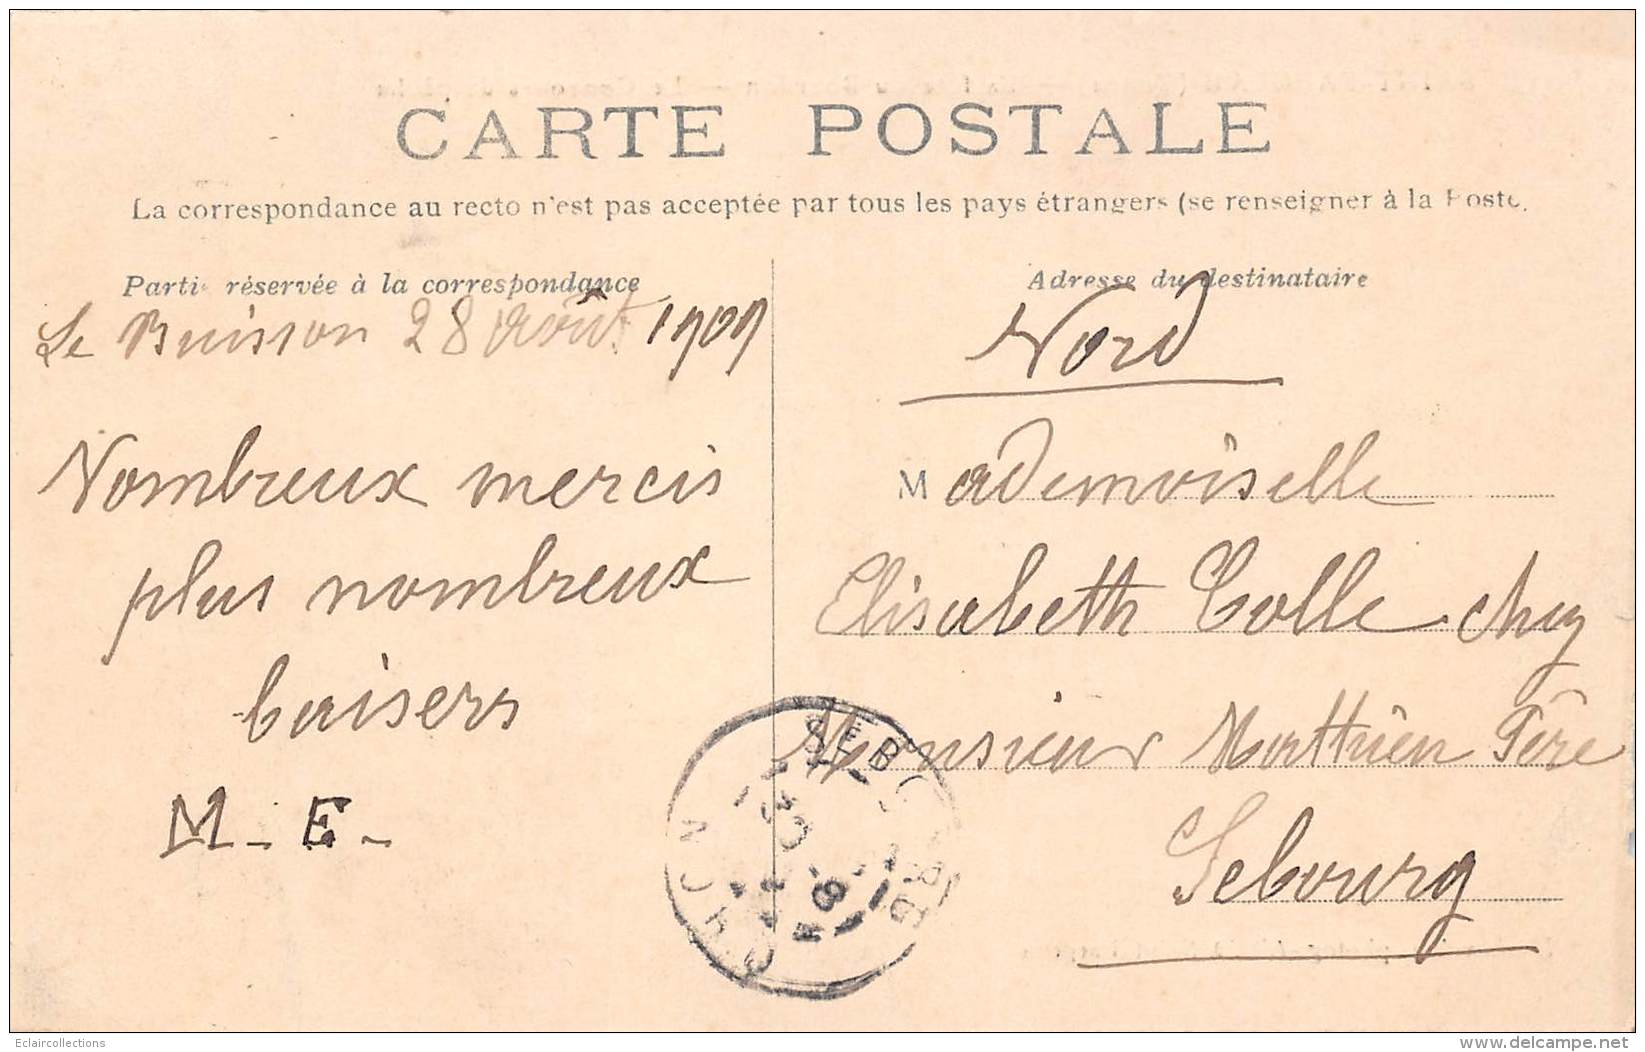 CARTE POSTALE
La correspondance au recto n'est pas acceptée par tous les pays étrangers (se renseigner à la Poste.
Partie réservée à la correspondance
Le Buisson 28 Août 1909
Nombreux mercis
plus nombreux
baisers
M. E.
Adresse du destinataire
Nord
Mademoiselle
Elisabeth Colle chez
Monsieur Matthieu Père
Sebourg
SEBOURG
NORD
Eclaircollections
delcampe.net